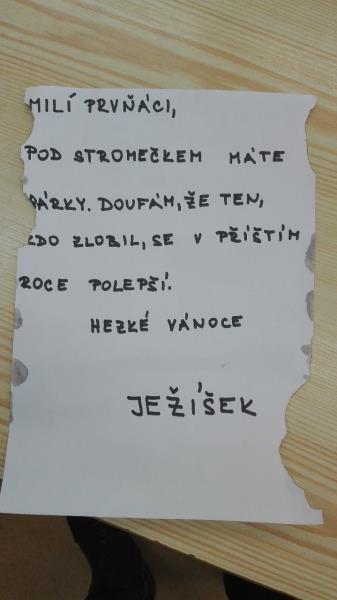 MILÍ PRVŇÁCI,
POD STROMEČKEM MÁTE
DÁRKY. DOUFÁM, ŽE TEN,
KDO ZLOBIL, SE V PŽÍŠTÍM
ROCE POLEPŠÍ.
HEZKÉ VÁNOCE
JEŽÍŠEK